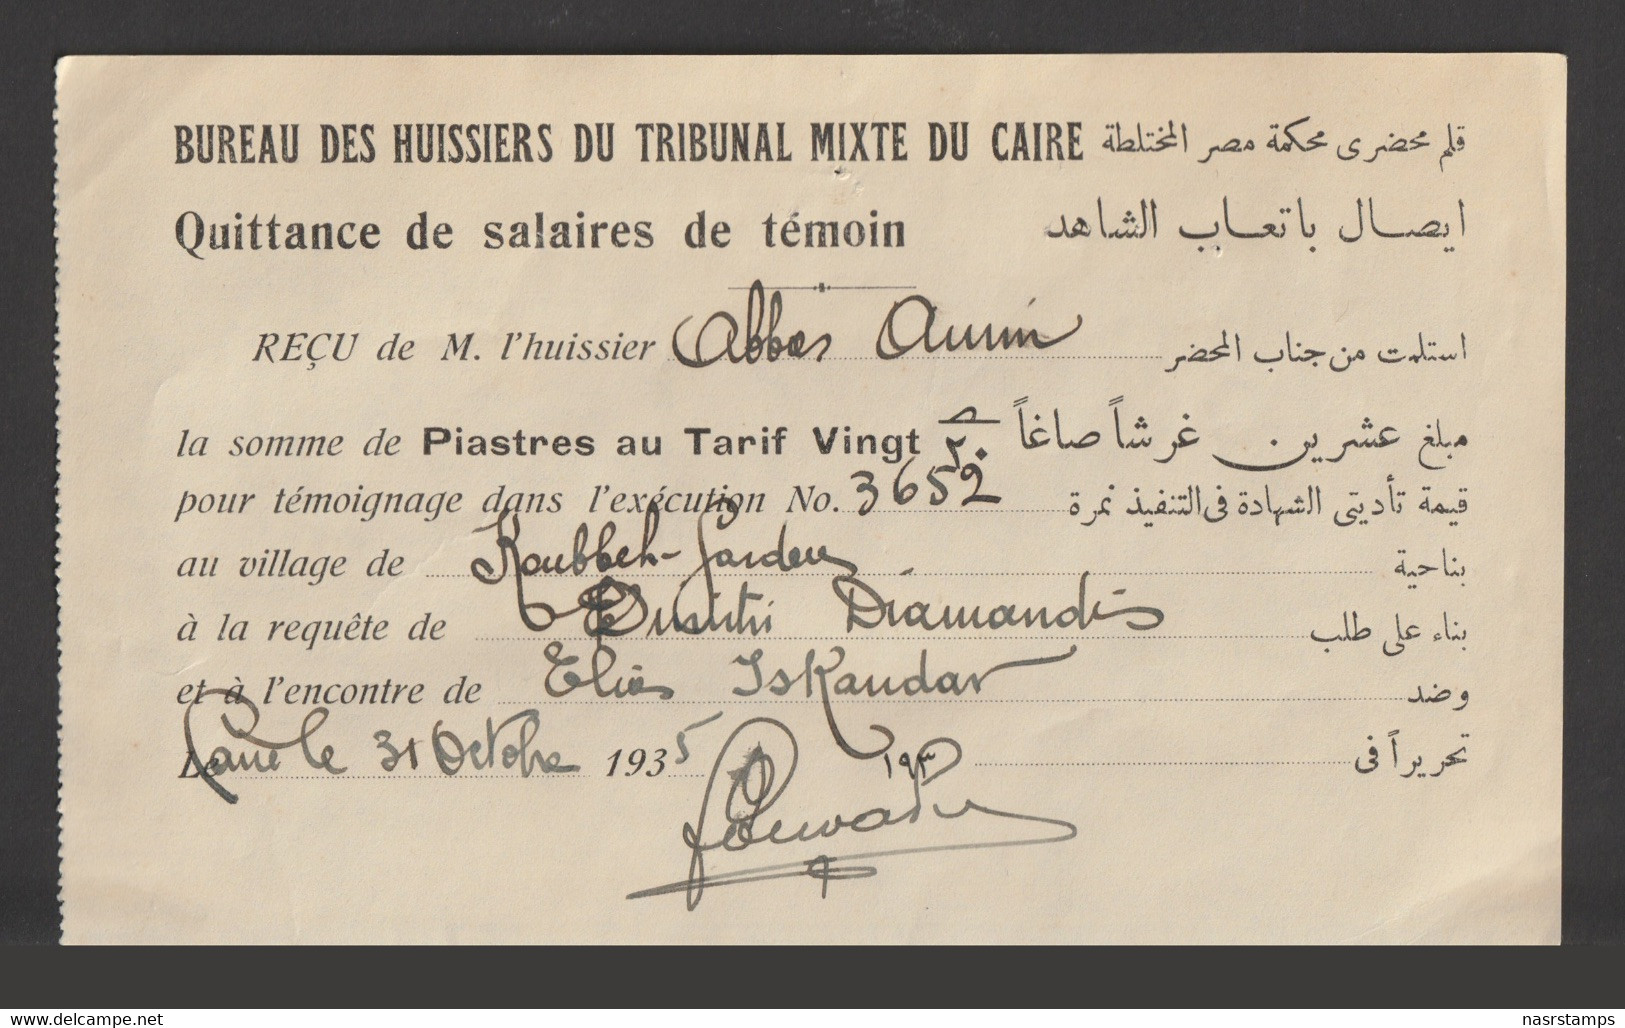 BUREAU DES HUISSIERS DU TRIBUNAL MIXTE DU CAIRE قلم محضرى محكمة مصر المختلطة
Quittance de salaires de témoin ايصال باتعاب الشاهد
REÇU de M. l'huissier Abbas Amin استلمت من جناب المحضر
la somme de Piastres au Tarif Vingt ٢٠ مبلغ عشرين غرشاً صاغاً
pour témoignage dans l'exécution No. 3652 قيمة تأديتى الشهادة فى التنفيذ نمرة
au village de Koubbeh-Gardens بناحية
à la requête de Dimitri Diamandis بناء على طلب
et à l'encontre de Elias Iskandar وضد
Le Caire le 31 Octobre 1935 ١٩٣ تحريراً فى
delcampe.net
nasrstamps